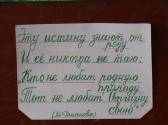 Эту истину знаю от
роду
И её никогда не таю:
Кто не любит родную
природу,
Тот не любит Отчизну
свою